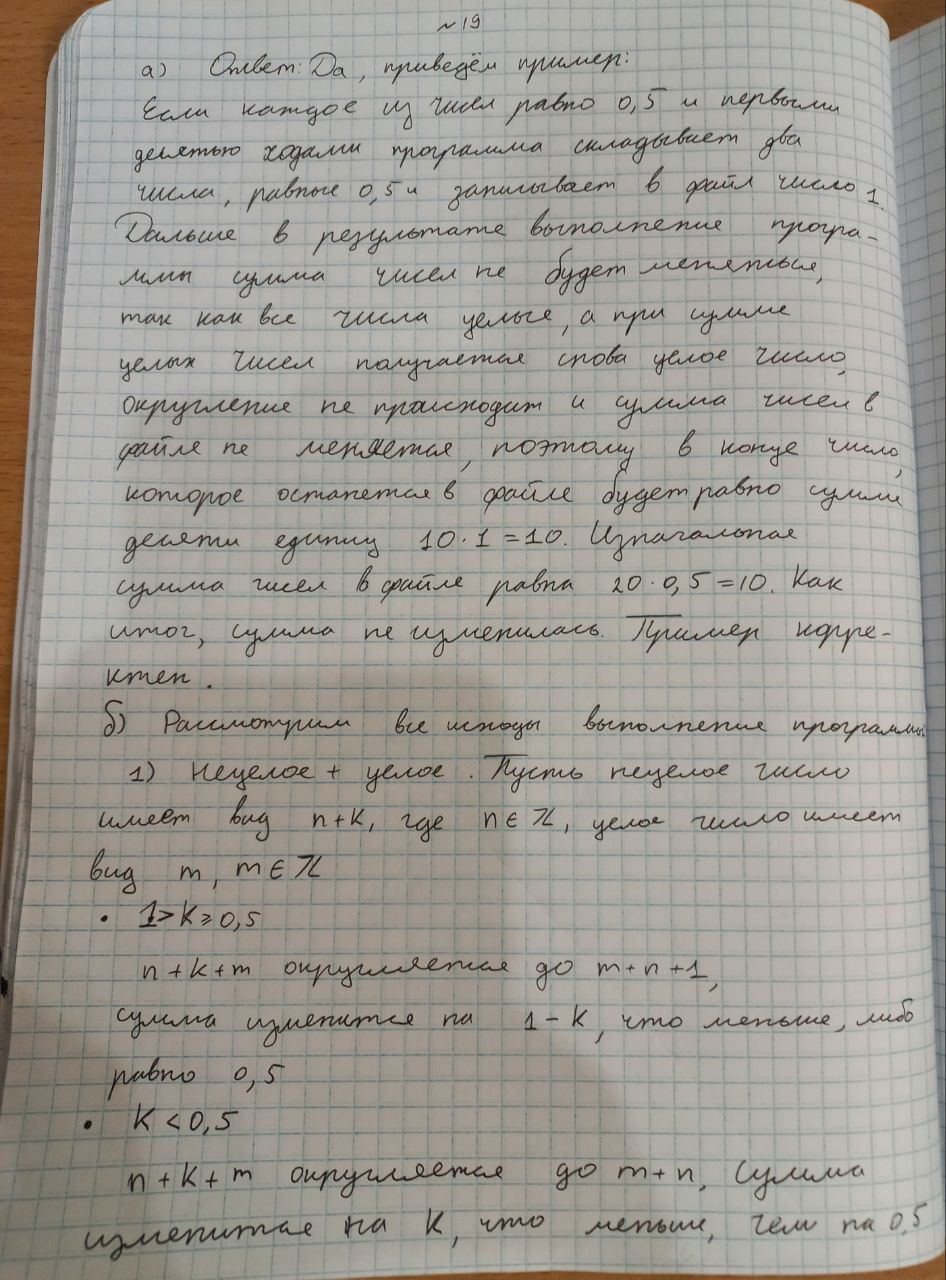 №19
а) Ответ: Да, приведём пример:
Если каждое из чисел равно 0,5 и первыми
десятью ходами программа складывает два
числа, равные 0,5 и записывает в файл число 1.
Дальше в результате выполнение програ-
ммы сумма чисел не будет меняться,
так как все числа целые, а при сумме
целых чисел получается снова целое число,
округление не происходит и сумма чисел в
файле не меняется, поэтому в конце число,
которое останется в файле будет равно сумме
десяти единиц 10·1=10. Изначальная
сумма чисел в файле равна 20·0,5=10. Как
итог, сумма не изменилась. Пример корре-
ктен.
б) Рассмотрим все исходы выполнение программы
1) Нецелое + целое. Пусть нецелое число
имеет вид n+k, где n∈ℤ, целое число имеет
вид m, m∈ℤ
• 1>k≥0,5
n+k+m округляется до m+n+1,
сумма изменится на 1-k, что меньше, либо
равно 0,5
• k<0,5
n+k+m округляется до m+n, сумма
изменится на k, что меньше, чем на 0,5